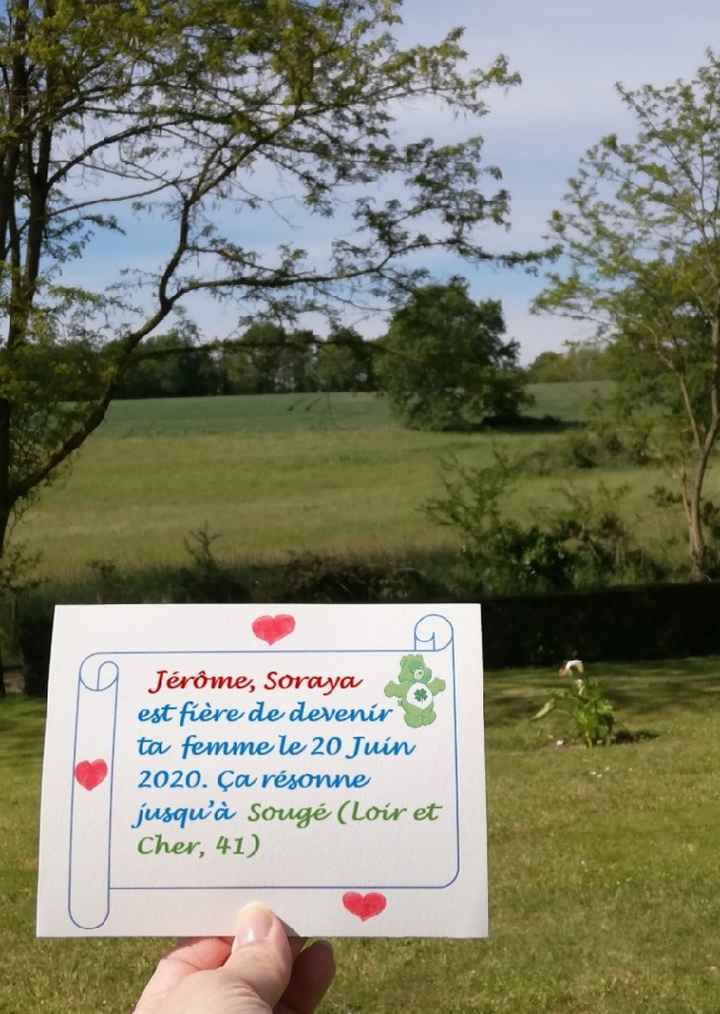 Jérôme, Soraya
est fière de devenir
ta femme le 20 Juin
2020. Ça résonne
jusqu'à Sougé (Loir et
Cher, 41)